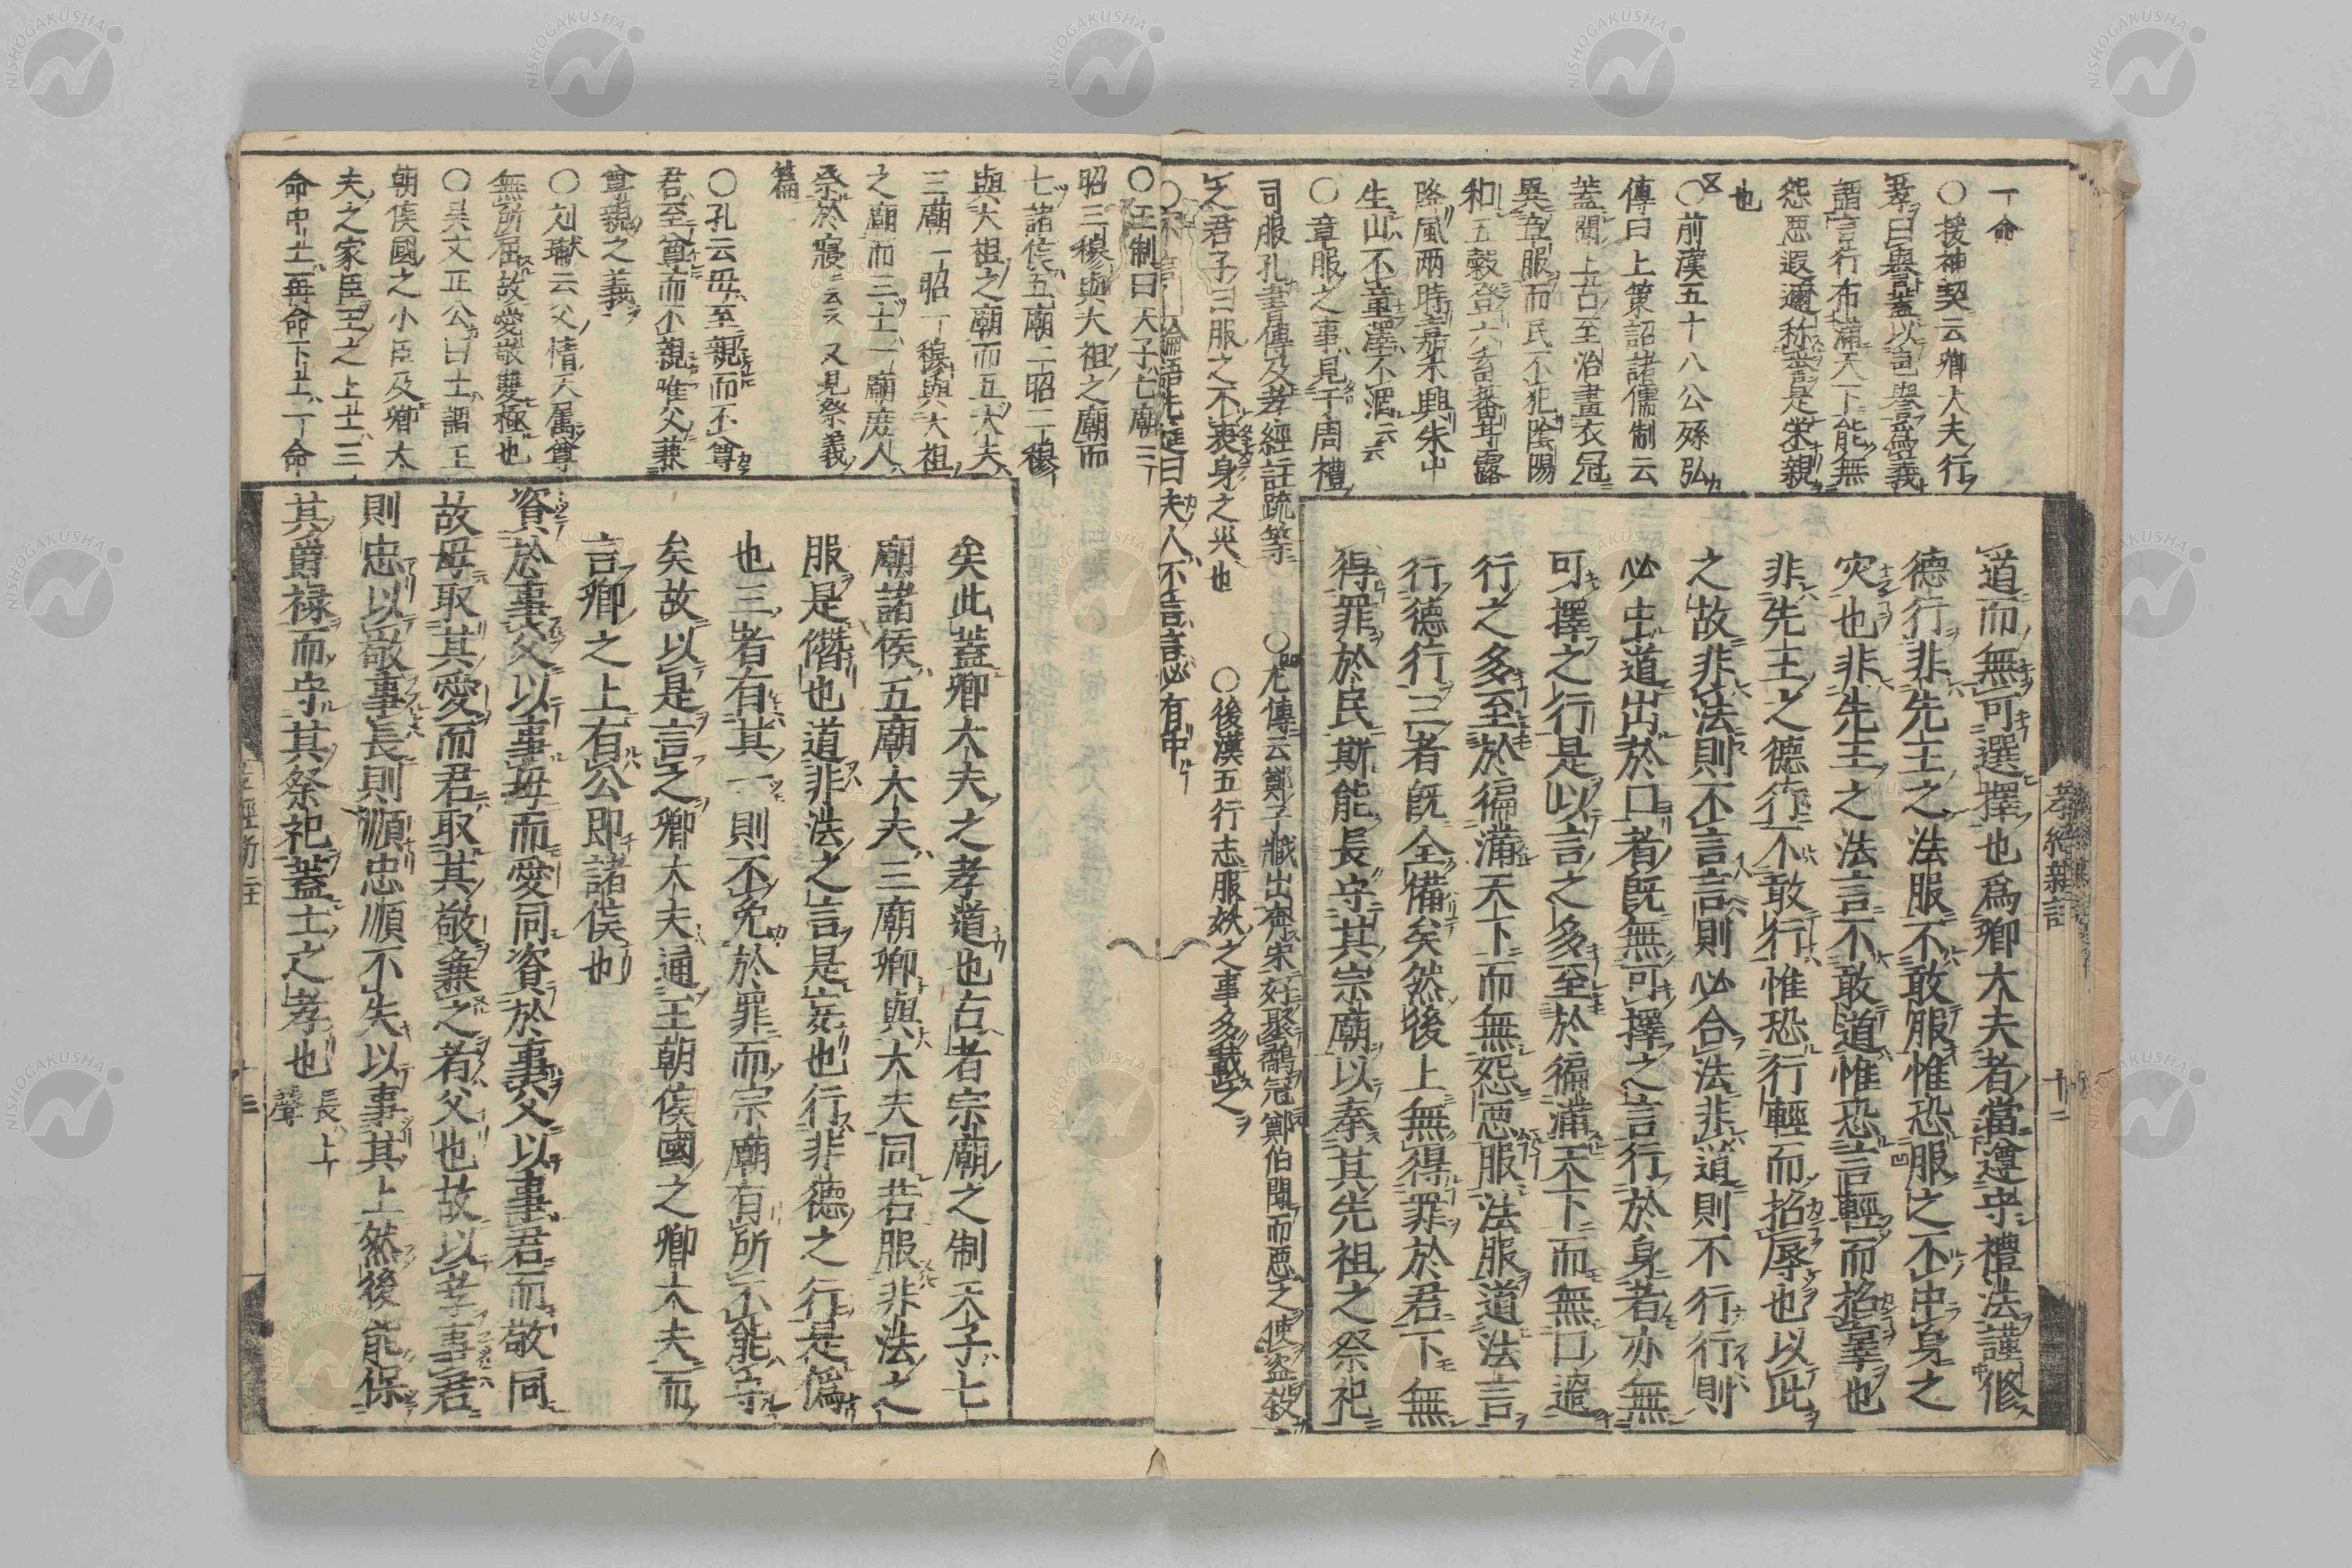 一命
○援神契云卿大夫行
孝曰譽蓋以言譽爲義
謂言行布滿天下能無
怨惡遐邇称譽是栄親
也
○前漢五十八公孫弘
傳曰上策詔諸儒制云
蓋聞上古至治畫衣冠
異章服而民不犯陰陽
和五穀登六畜蕃甘露
降風雨時嘉禾興朱中
生山不童澤不涸云云
○章服之事見于周禮
司服孔書傳及孝經註疏等
○左傳云鄭子臧出奔宋好聚鷸冠鄭伯聞而惡之使盗殺
之君子曰服之不衷身之災也
○後漢五行志服妖之事多載之
論語先進曰夫人不言言必有中
道而無可選擇也爲卿大夫者當遵守禮法謹修
德行非先王之法服不敢服惟恐服之不中身之
灾也非先王之法言不敢道惟恐言輕而招辜也
非先王之德行不敢行惟恐行輕而招辱也以此
之故非法則不言言則必合法非道則不行行則
必中道出於口者既無可擇之言行於身者亦無
可擇之行是以言之多至於徧滿天下而無口過
行之多至於徧滿天下而無怨惡服法服道法言
行德行三者既全備矣然後上無得罪於君下無
得罪於民斯能長守其宗廟以奉其先祖之祭祀
十二
○王制曰天子七廟三
昭三穆與大祖之廟而
七諸侯五廟二昭二穆
與大祖之廟而五大夫
三廟一昭一穆與大祖
之廟而三士一廟庶人
祭於寢云云又見祭義
篇
○孔云母至親而不尊
君至尊而不親唯父兼
尊親之義
○刘瓛云父情天属尊
無所屈故愛敬雙極也
○吴文正公曰士謂王
朝侯國之小臣及卿大
夫之家臣王之上士三
命中士再命下士一命
矣此蓋卿大夫之孝道也右者宗廟之制天子七
廟諸侯五廟大夫三廟卿與大夫同若服非法之
服是僭也道非法之言是妄也行非德之行是僞
也三者有其一則不免於罪而宗廟有所不能守
矣故以是言之卿大夫通王朝侯國之卿大夫而
言卿之上有公即諸侯也
資於事父以事母而愛同資於事父以事君而敬同
故母取其愛而君取其敬兼之者父也故以孝事君
則忠以敬事長則順忠順不失以事其上然後能保
其爵禄而守其祭祀蓋士之孝也
長上
聲
十三